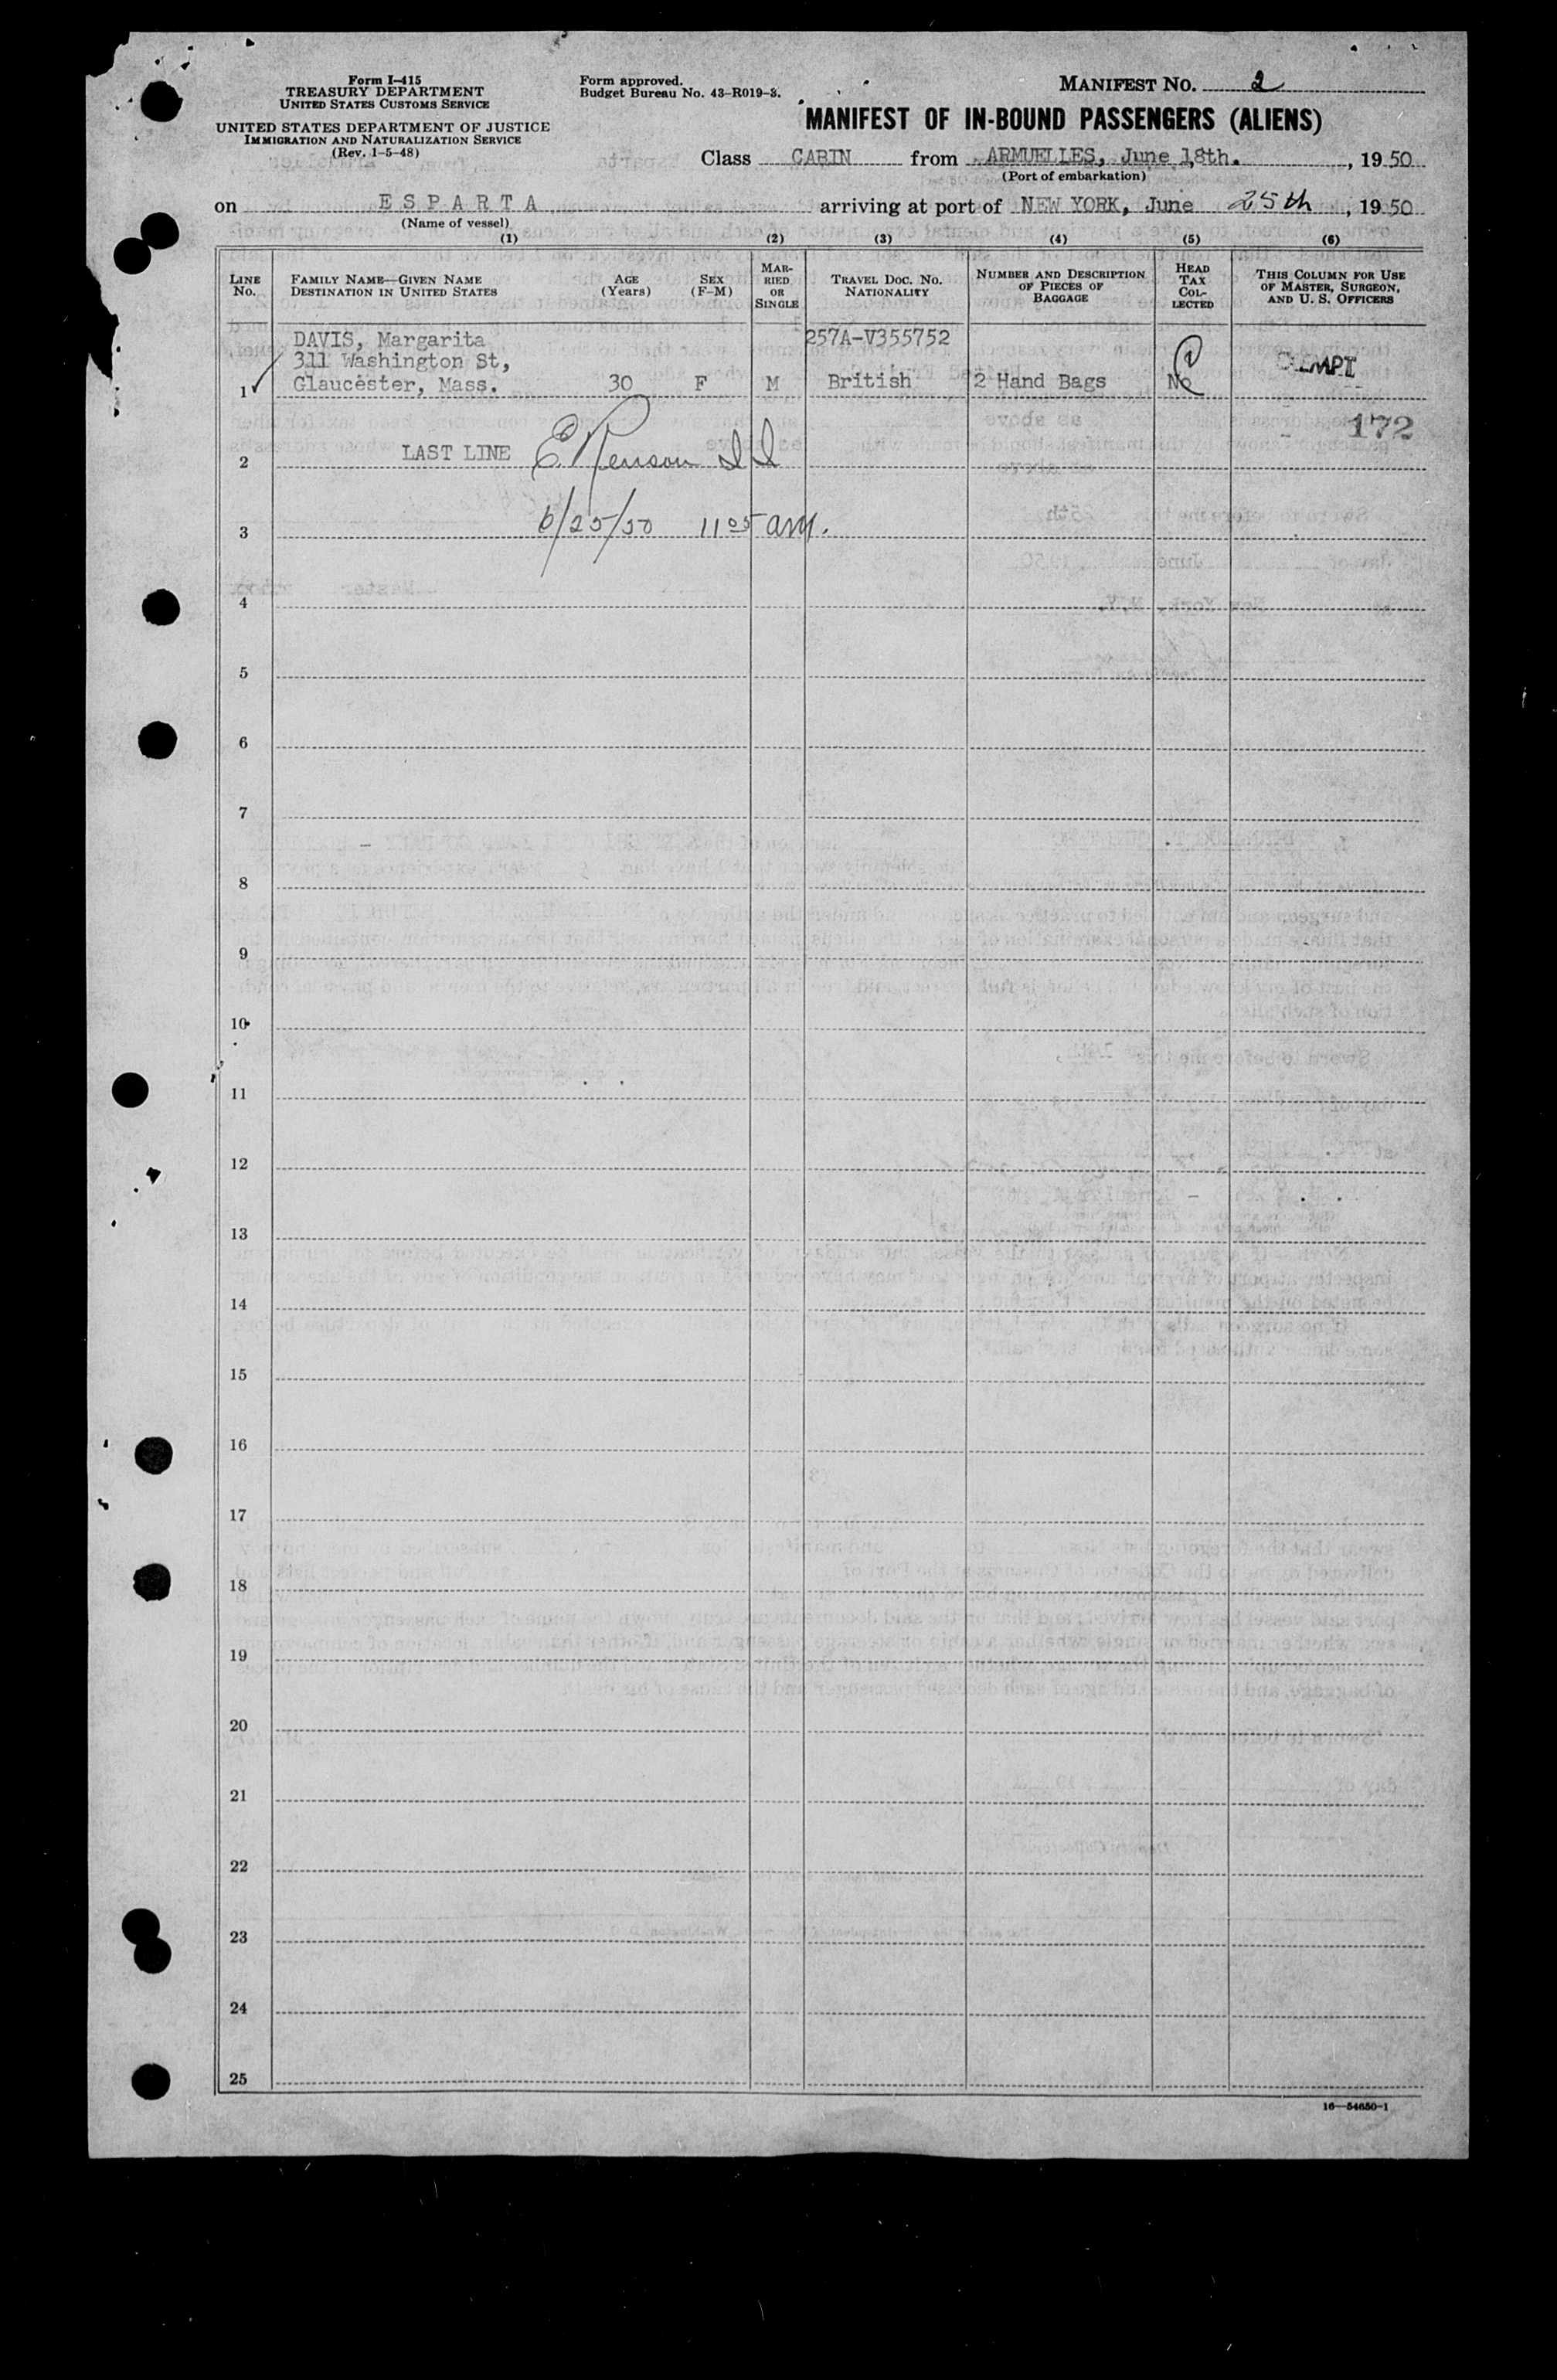 Form I-415
TREASURY DEPARTMENT
UNITED STATES CUSTOMS SERVICE
UNITED STATES DEPARTMENT OF JUSTICE
IMMIGRATION AND NATURALIZATION SERVICE
(Rev. 1-5-48)
Form approved.
Budget Bureau No. 43-R019-3.
MANIFEST NO. 2
MANIFEST OF IN-BOUND PASSENGERS (ALIENS)
Class CABIN from ARMUELLES, June 18th. , 1950
(Port of embarkation)
on E S P A R T A arriving at port of NEW YORK, June 25th , 1950
(Name of vessel)
(1) (2) (3) (4) (5) (6)
LINE No. FAMILY NAME—GIVEN NAME DESTINATION IN UNITED STATES AGE (Years) SEX (F-M) MAR-RIED OR SINGLE TRAVEL DOC. NO. NATIONALITY NUMBER AND DESCRIPTION OF PIECES OF BAGGAGE HEAD TAX COL-LECTED THIS COLUMN FOR USE OF MASTER, SURGEON, AND U. S. OFFICERS
DAVIS, Margarita 257A-V355752
311 Washington St,
1 Glaucester, Mass. 30 F M British 2 Hand Bags No
172
2 LAST LINE
3 6/25/50 11 05 am.
4
5
6
7
8
9
10
11
12
13
14
15
16
17
18
19
20
21
22
23
24
25
16—54650-1